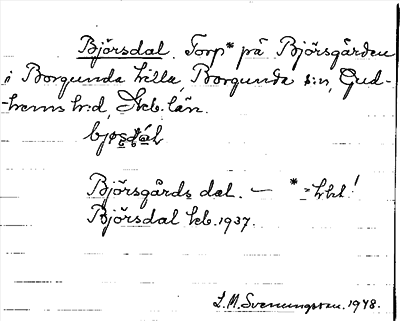 Björsdal. Torp* på Björsgården
i Borgunda killa, Borgunda s:n, Gud-
hems hr:d, Skb. län.
Björsgårds dal. — * = hbt!
Björsdal keb. 1937.
L. M. Svenungsson. 1948.